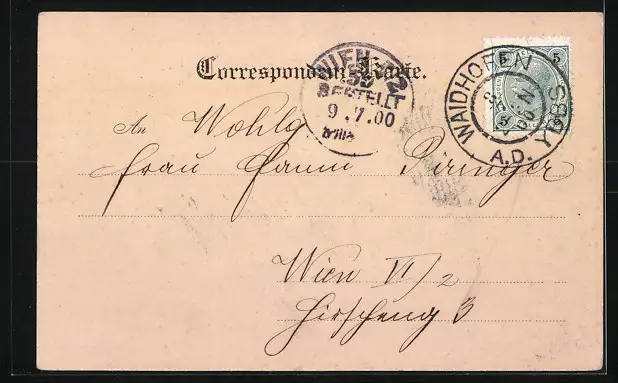 Correspondenz-Karte.
WIEN
BESTELLT
9.7.00
WAIDHOFEN
A.D. YBBS
5 5
5 5
An Wohlg.
Frau Fanni Diringer
Wien VI/2
Hirscheng 3